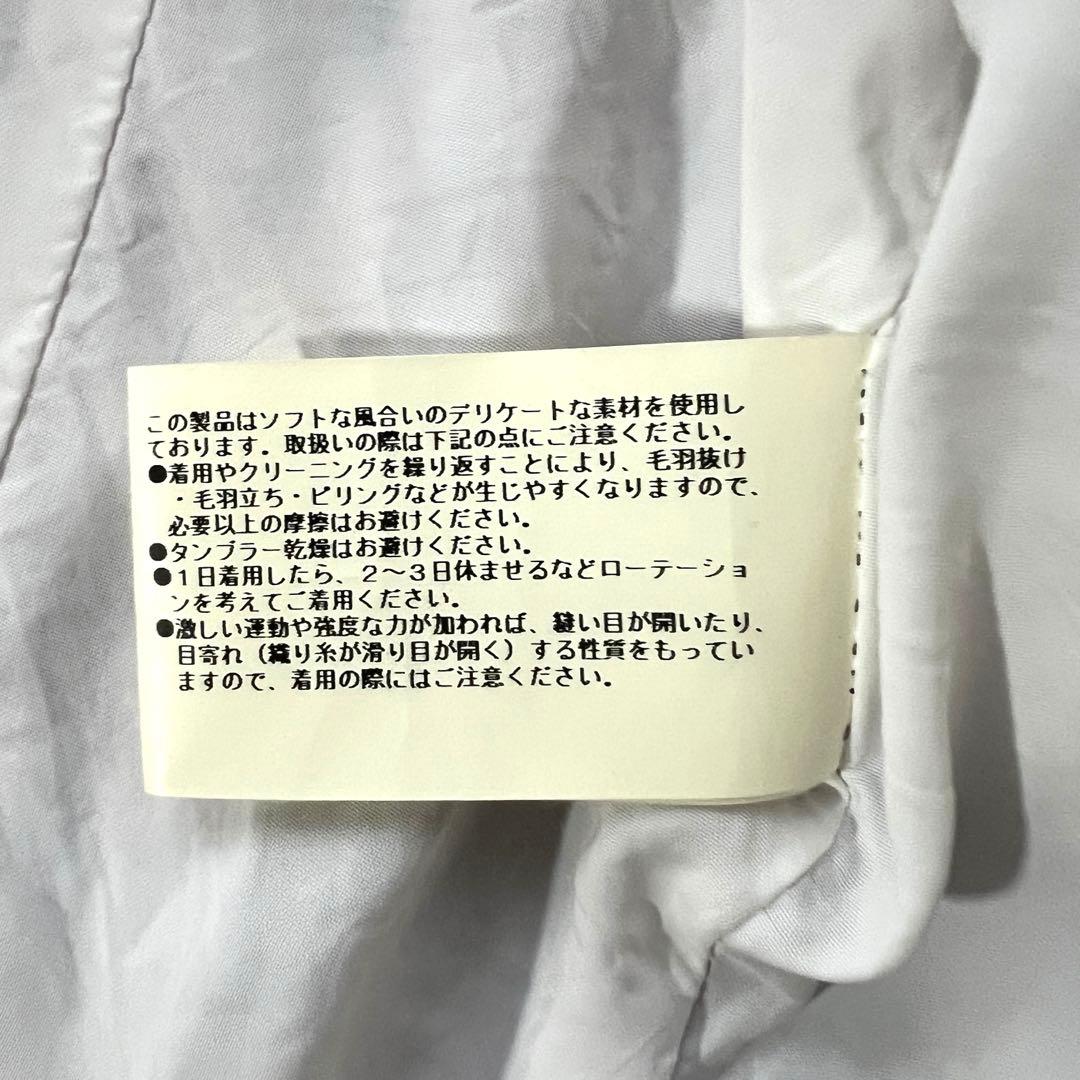 この製品はソフトな風合いのデリケートな素材を使用し
ております。取扱いの際は下記の点にご注意ください。
●着用やクリーニングを繰り返すことにより、毛羽抜け
・毛羽立ち・ピリングなどが生じやすくなりますので、
必要以上の摩擦はお避けください。
●タンブラー乾燥はお避けください。
●１日着用したら、２～３日休ませるなどローテーショ
ンを考えてご着用ください。
●激しい運動や強度な力が加われば、縫い目が開いたり、
目寄れ（織り糸が滑り目が開く）する性質をもってい
ますので、着用の際にはご注意ください。